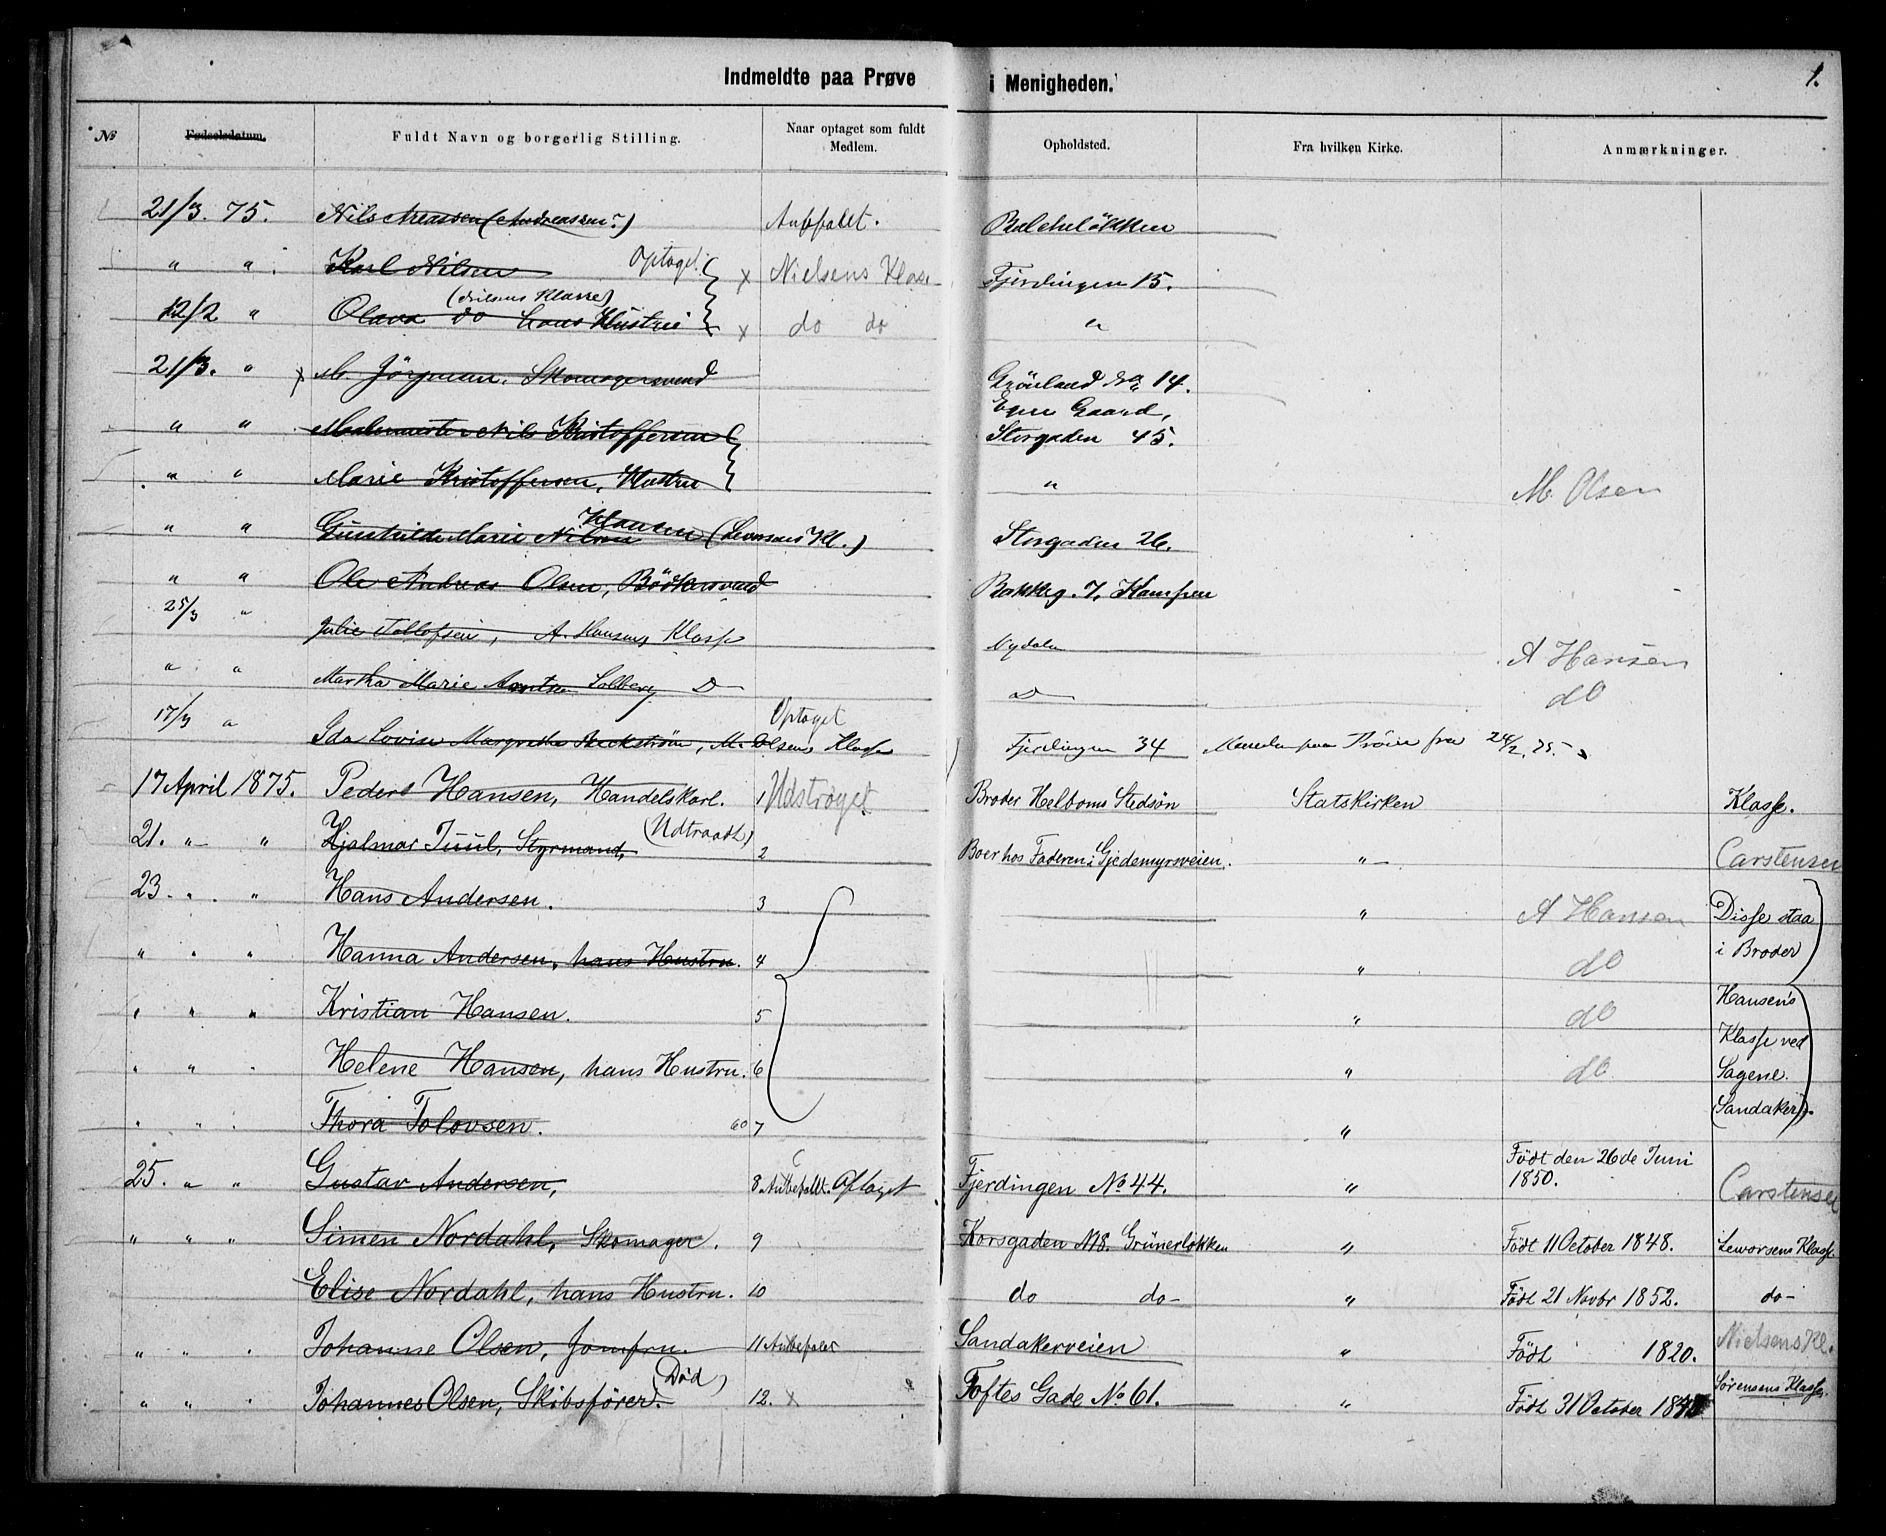 Indmeldte paa Prøve i Menigheden. 1.
№ Fødselsdatum. Fuldt Navn og borgerlig Stilling. Naar optaget som fuldt Medlem. Opholdsted. Fra hvilken Kirke. Anmærkninger.
21/3. 75. Nils (Andreassen?)
" " Karl Nilsen Optaget x Nielsens Klasse Fjerdingen 15.
(Nilsens Klasse)
12/2 " Olava do hans Hustru x do do "
21/3. " Skomagersvend Grönland 14.
" " Nils Kristoffersen Egen Gaard, Storgaden 45.
" " Marie Kristoffersen, Hustru " M. Olsen
Klausen
" " Gunhilde Marie Nilsen (Levorsens Kl.) Storgaden 26.
" " Ole Andreas Olsen, Bödkersvend Bakkeg. 7, Kampen
25/3 " Julie Tollofsen, A. Hansens Klasse Nydalen A Hansen
" " Martha Marie Solberg D D do
17/3 " Ida Lovise Margrethe Beckström, M. Olsens Klasse Optaget Fjerdingen 34 paa Pröve fra 24/2. 75.
17 April 1875. Peder Hansen, Handelskarl. 1 Udströget Broder Helboms Stedsön Statskirken Klasse.
21. " " Hjalmar Juul, Styrmand, (Udtraadt) 2 Boer hos Faderen i Gjedemyrsveien. " Carstensen
23. " " Hans Andersen. 3 " A Hansen Disse staa
" " " Hanna Andersen, hans Hustru. 4 " do i Broder
" " " Kristian Hansen. 5 " do Hansen's
" " " Helene Hansen, hans Hustru. 6 " do Klasse ved Sagene
" " " Thora Tolovsen. 7 " (Sandaker).
25. " " Gustav Andersen, 8 Anbefalet. Optaget Fjerdingen No 44. " Födt den 26de Juni 1850. Carstensen
" " " Simen Nordahl, Skomager. 9 Korsgaden N 18. Grünerløkken " Födt 11 October 1848. Levorsens Klasse
Elise Nordahl, hans Hustru. 10 do do " Födt 21 Novbr 1852. do
" " " Johanne Olsen, Jomfru. 11 Anbefales Sandakerveien " Födt 1820. Nielsens Kl.
" " " Johannes Olsen, Skibsförer. (Død) 12. x Toftes Gade No 61. " Födt 31 October Sörensens Klasse.